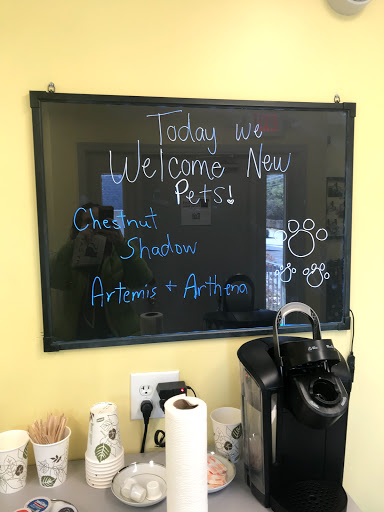 Today we
Welcome New
Pets!
Chestnut
Shadow
Artemis + Arthena